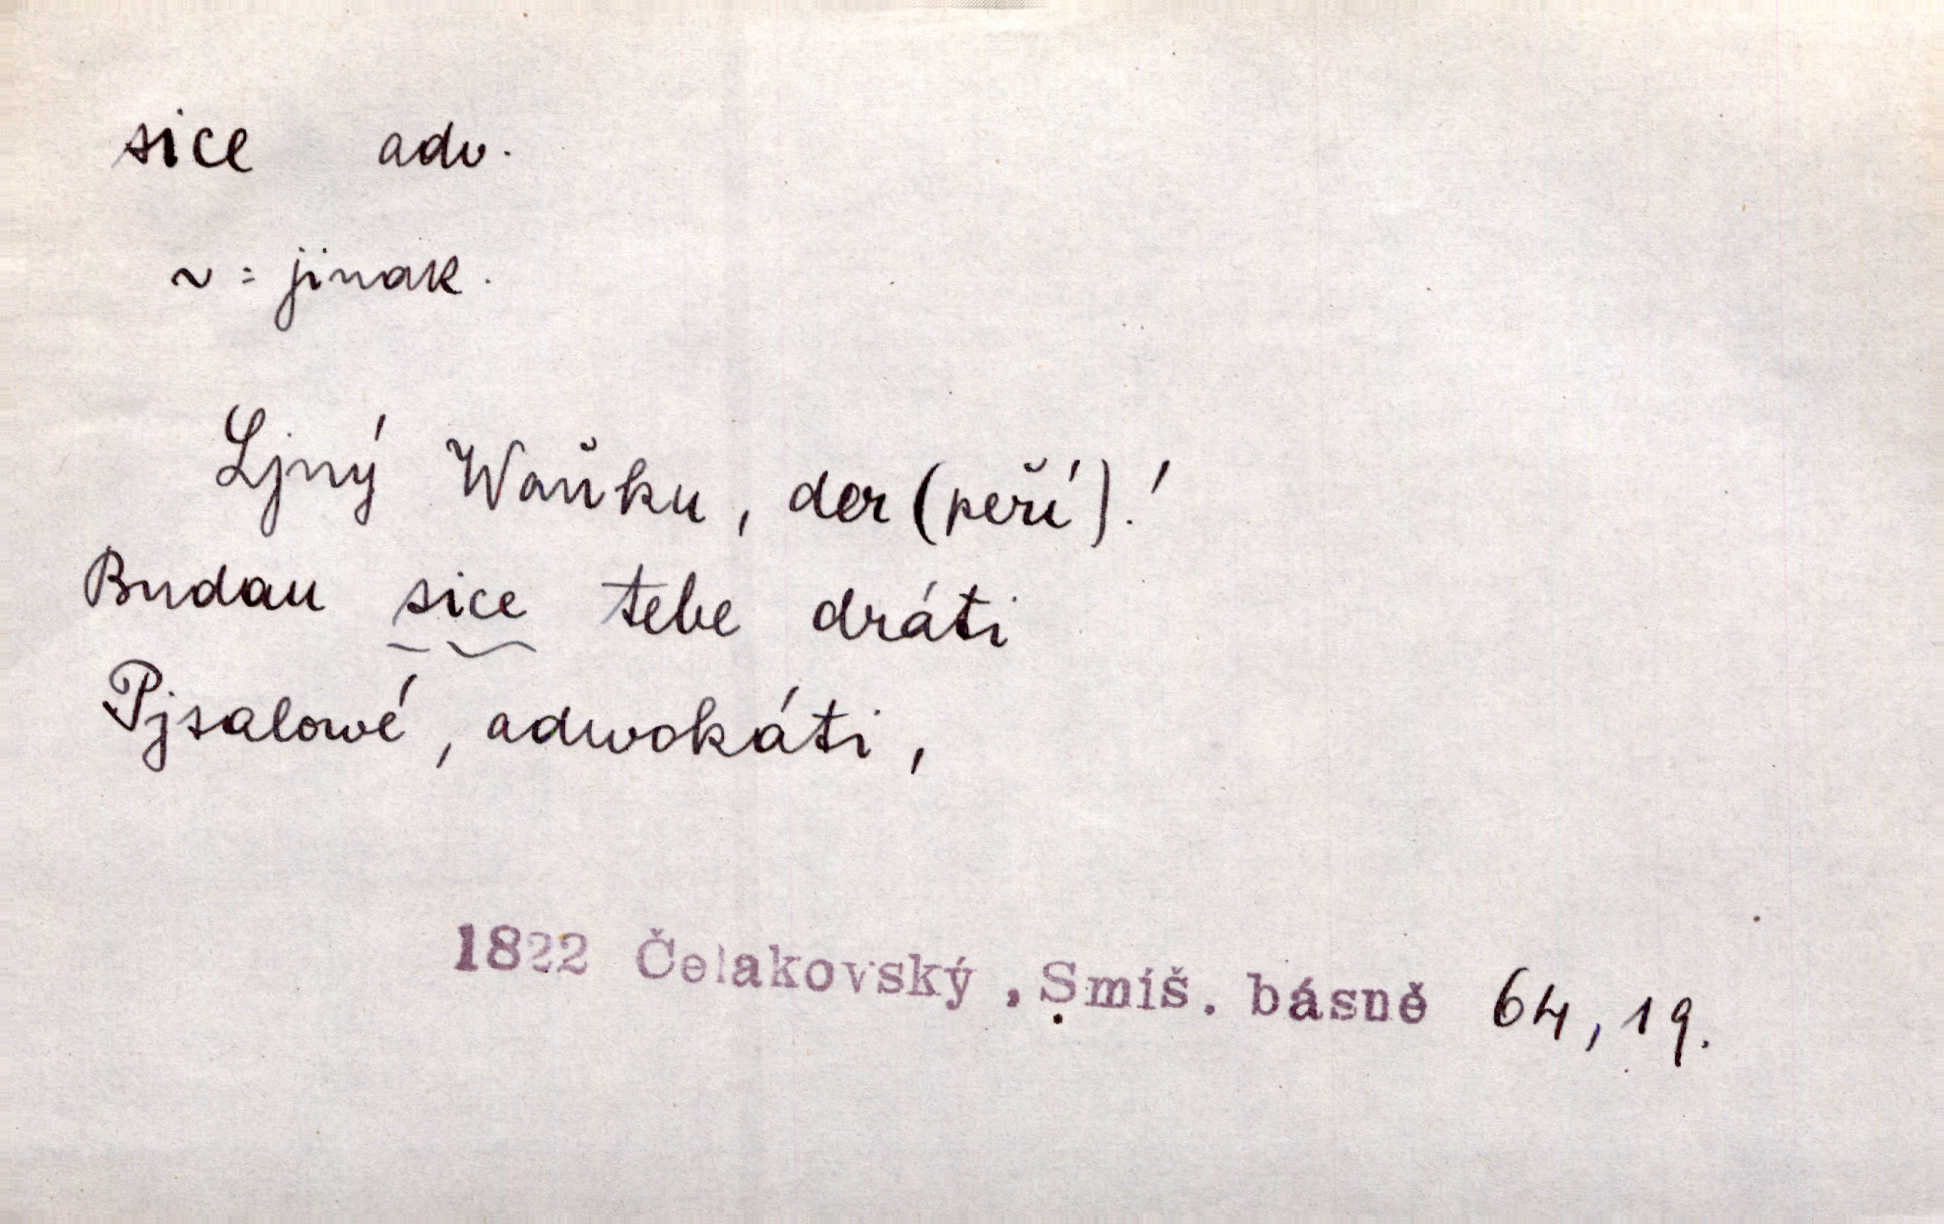 sice adv.
~ = jinak.
Ljný Waňku, der (peří)!
Budau sice tebe dráti
Pjsalowé, adwokáti,
1822 Čelakovský, Smíš. básně 64, 19.